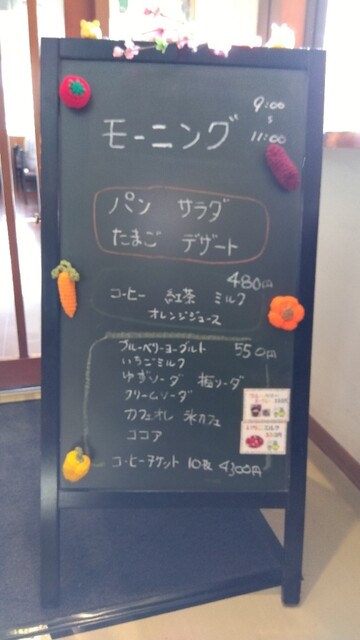 モーニング
9:00
〜
11:00
パン サラダ
たまご デザート
480円
コーヒー 紅茶 ミルク
オレンジジュース
ブルーベリーヨーグルト 550円
いちごミルク
ゆずソーダ 梅ソーダ
クリームソーダ
カフェオレ 氷カフェ
ココア
コーヒーチケット 10枚 4300円
いちごミルク